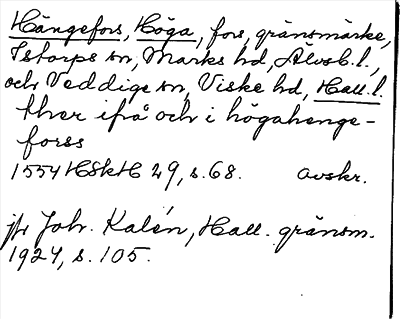 Hängefors, Höga, fors, gränsmärke,
Istorps sn, Marks hd, Älvsb.l.,
och Veddige sn, Viske hd, Hall.l.
ther ifrå och i högahenge-
forss
1554 HSkH 29, s.68. avskr.
jfr Joh. Kalén, Hall. gränsm.
1924, s. 105.